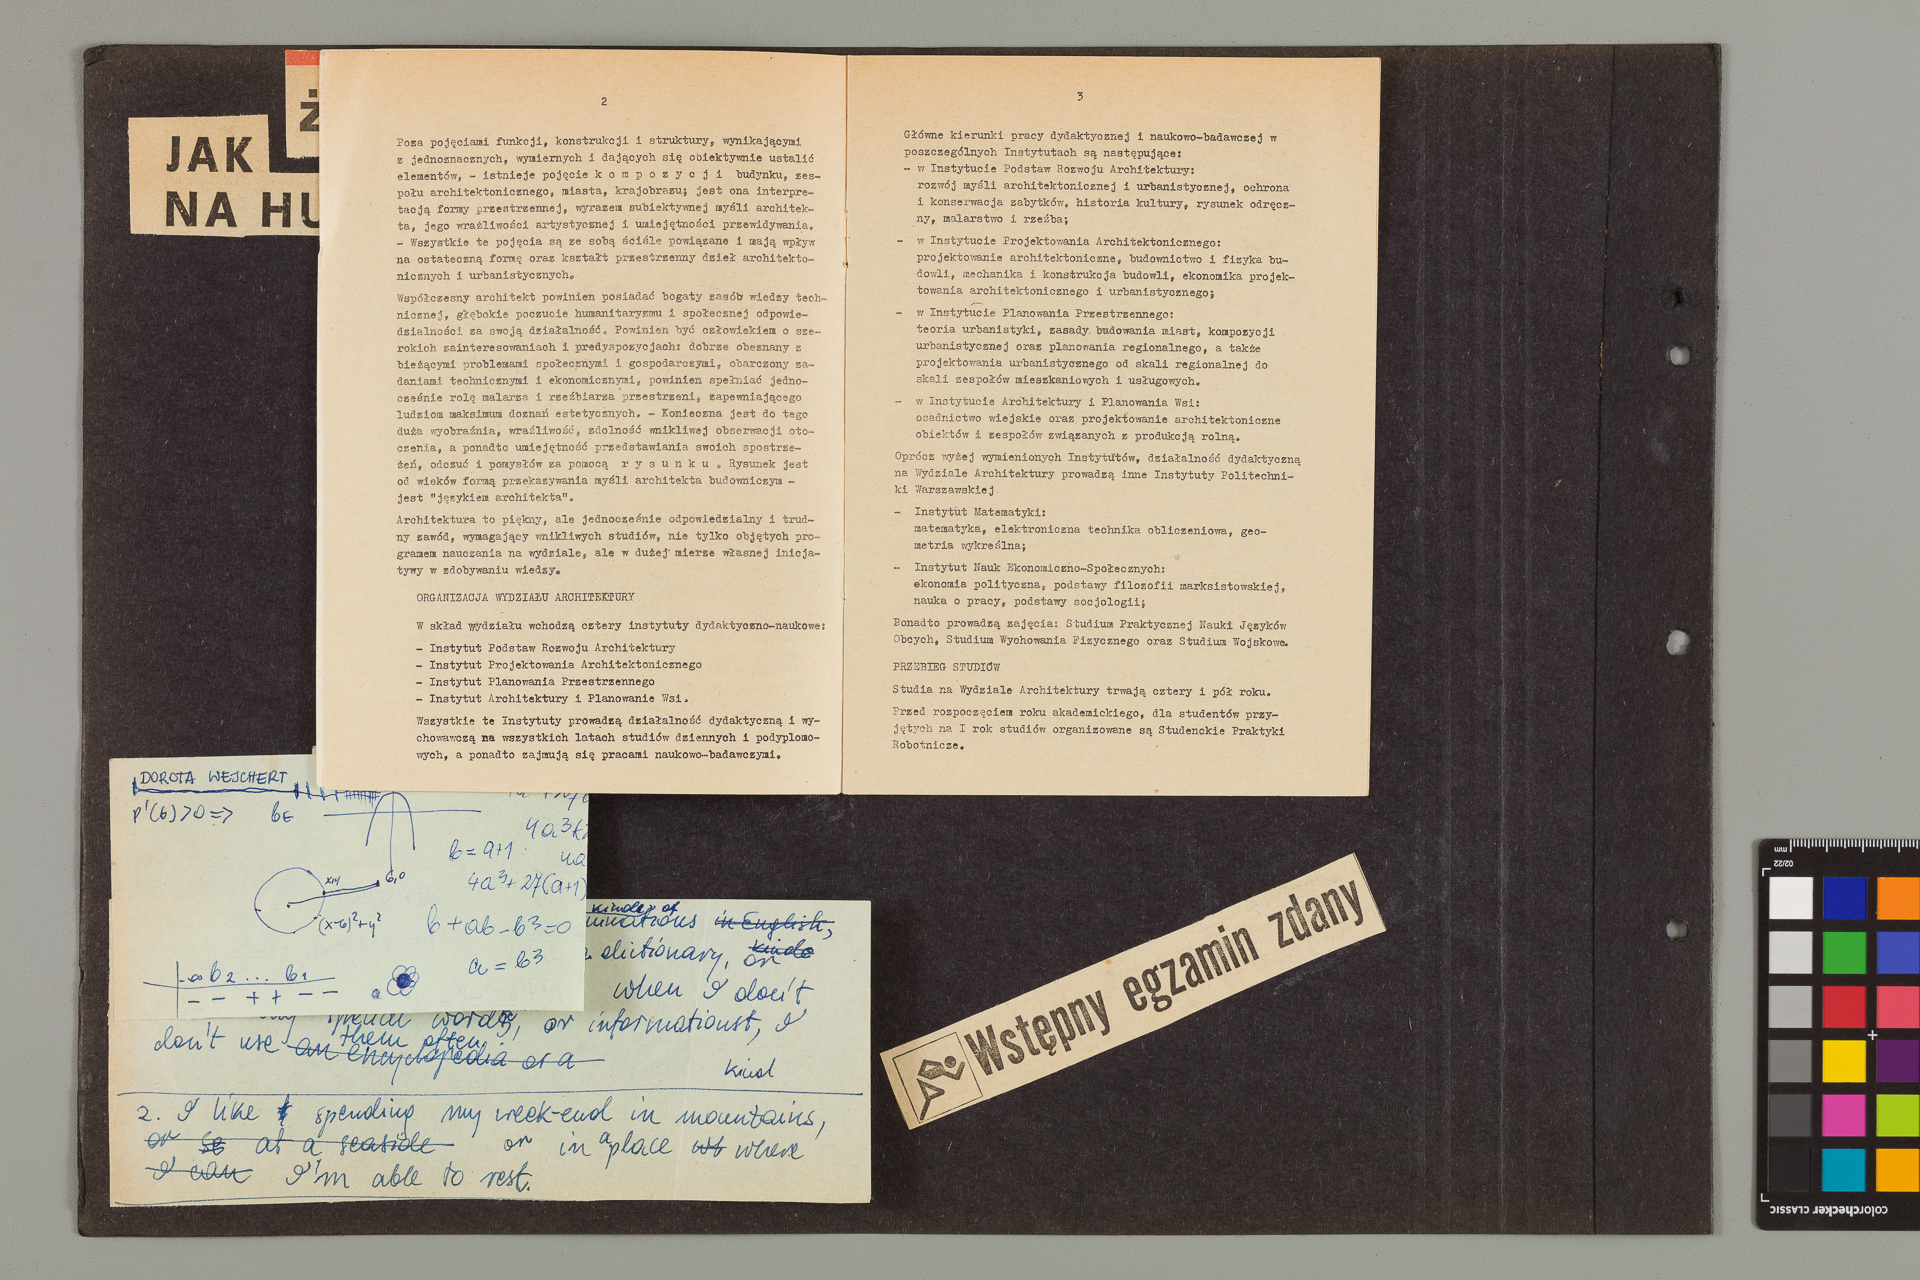 Ż
JAK
NA HU
2
Poza pojęciami funkcji, konstrukcji i struktury, wynikającymi
z jednoznacznych, wymiernych i dających się obiektywnie ustalić
elementów, - istnieje pojęcie k o m p o z y c j i budynku, zes-
połu architektonicznego, miasta, krajobrazu; jest ona interpre-
tacją formy przestrzennej, wyrazem subiektywnej myśli architek-
ta, jego wrażliwości artystycznej i umiejętności przewidywania.
- Wszystkie te pojęcia są ze sobą ściśle powiązane i mają wpływ
na ostateczną formę oraz kształt przestrzenny dzieł architekto-
nicznych i urbanistycznych.
Współczesny architekt powinien posiadać bogaty zasób wiedzy tech-
nicznej, głębokie poczucie humanitaryzmu i społecznej odpowie-
dzialności za swoją działalność. Powinien być człowiekiem o sze-
rokich zainteresowaniach i predyspozycjach: dobrze obeznany z
bieżącymi problemami społecznymi i gospodarczymi, obarczony za-
daniami technicznymi i ekonomicznymi, powinien spełniać jedno-
cześnie rolę malarza i rzeźbiarza przestrzeni, zapewniającego
ludziom maksimum doznań estetycznych. - Konieczna jest do tego
duża wyobraźnia, wrażliwość, zdolność wnikliwej obserwacji oto-
czenia, a ponadto umiejętność przedstawiania swoich spostrze-
żeń, odczuć i pomysłów za pomocą r y s u n k u . Rysunek jest
od wieków formą przekazywania myśli architekta budowniczym -
jest "językiem architekta".
Architektura to piękny, ale jednocześnie odpowiedzialny i trud-
ny zawód, wymagający wnikliwych studiów, nie tylko objętych pro-
gramem nauczania na wydziale, ale w dużej mierze własnej inicja-
tywy w zdobywaniu wiedzy.
ORGANIZACJA WYDZIAŁU ARCHITEKTURY
W skład wydziału wchodzą cztery instytuty dydaktyczno-naukowe:
- Instytut Podstaw Rozwoju Architektury
- Instytut Projektowania Architektonicznego
- Instytut Planowania Przestrzennego
- Instytut Architektury i Planowanie Wsi.
Wszystkie te Instytuty prowadzą działalność dydaktyczną i wy-
chowawczą na wszystkich latach studiów dziennych i podyplomo-
wych, a ponadto zajmują się pracami naukowo-badawczymi.
3
Główne kierunki pracy dydaktycznej i naukowo-badawczej w
poszczególnych Instytutach są następujące:
- w Instytucie Podstaw Rozwoju Architektury:
rozwój myśli architektonicznej i urbanistycznej, ochrona
i konserwacja zabytków, historia kultury, rysunek odręcz-
ny, malarstwo i rzeźba;
- w Instytucie Projektowania Architektonicznego:
projektowanie architektoniczne, budownictwo i fizyka bu-
dowli, mechanika i konstrukcja budowli, ekonomika projek-
towania architektonicznego i urbanistycznego;
- w Instytucie Planowania Przestrzennego:
teoria urbanistyki, zasady budowania miast, kompozycji
urbanistycznej oraz planowania regionalnego, a także
projektowania urbanistycznego od skali regionalnej do
skali zespołów mieszkaniowych i usługowych.
- w Instytucie Architektury i Planowania Wsi:
osadnictwo wiejskie oraz projektowanie architektoniczne
obiektów i zespołów związanych z produkcją rolną.
Oprócz wyżej wymienionych Instytutów, działalność dydaktyczną
na Wydziale Architektury prowadzą inne Instytuty Politechni-
ki Warszawskiej
- Instytut Matematyki:
matematyka, elektroniczna technika obliczeniowa, geo-
metria wykreślna;
- Instytut Nauk Ekonomiczno-Społecznych:
ekonomia polityczna, podstawy filozofii marksistowskiej,
nauka o pracy, podstawy socjologii;
Ponadto prowadzą zajęcia: Studium Praktycznej Nauki Języków
Obcych, Studium Wychowania Fizycznego oraz Studium Wojskowe.
PRZEBIEG STUDIÓW
Studia na Wydziale Architektury trwają cztery i pół roku.
Przed rozpoczęciem roku akademickiego, dla studentów przy-
jętych na I rok studiów organizowane są Studenckie Praktyki
Robotnicze.
DOROTA WEJCHERT
p'(b)>0 => b∈
b=a+1
4a³+27(a+1)
x,y 6,0
(x-6)²+y²
b+ab-b³=0
a=b³
-∞ b2 ... b1
- - + + - -
kinds of
in English,
dictionary, kinds
or
when I don't
words, or informationst, I
them often
don't use an encyclopedia or a
kind
2. I like spending my week-end in mountains,
or se at a seaside or in a place wh where
I can I'm able to rest.
Wstępny egzamin zdany
mm
02/22
colorchecker CLASSIC